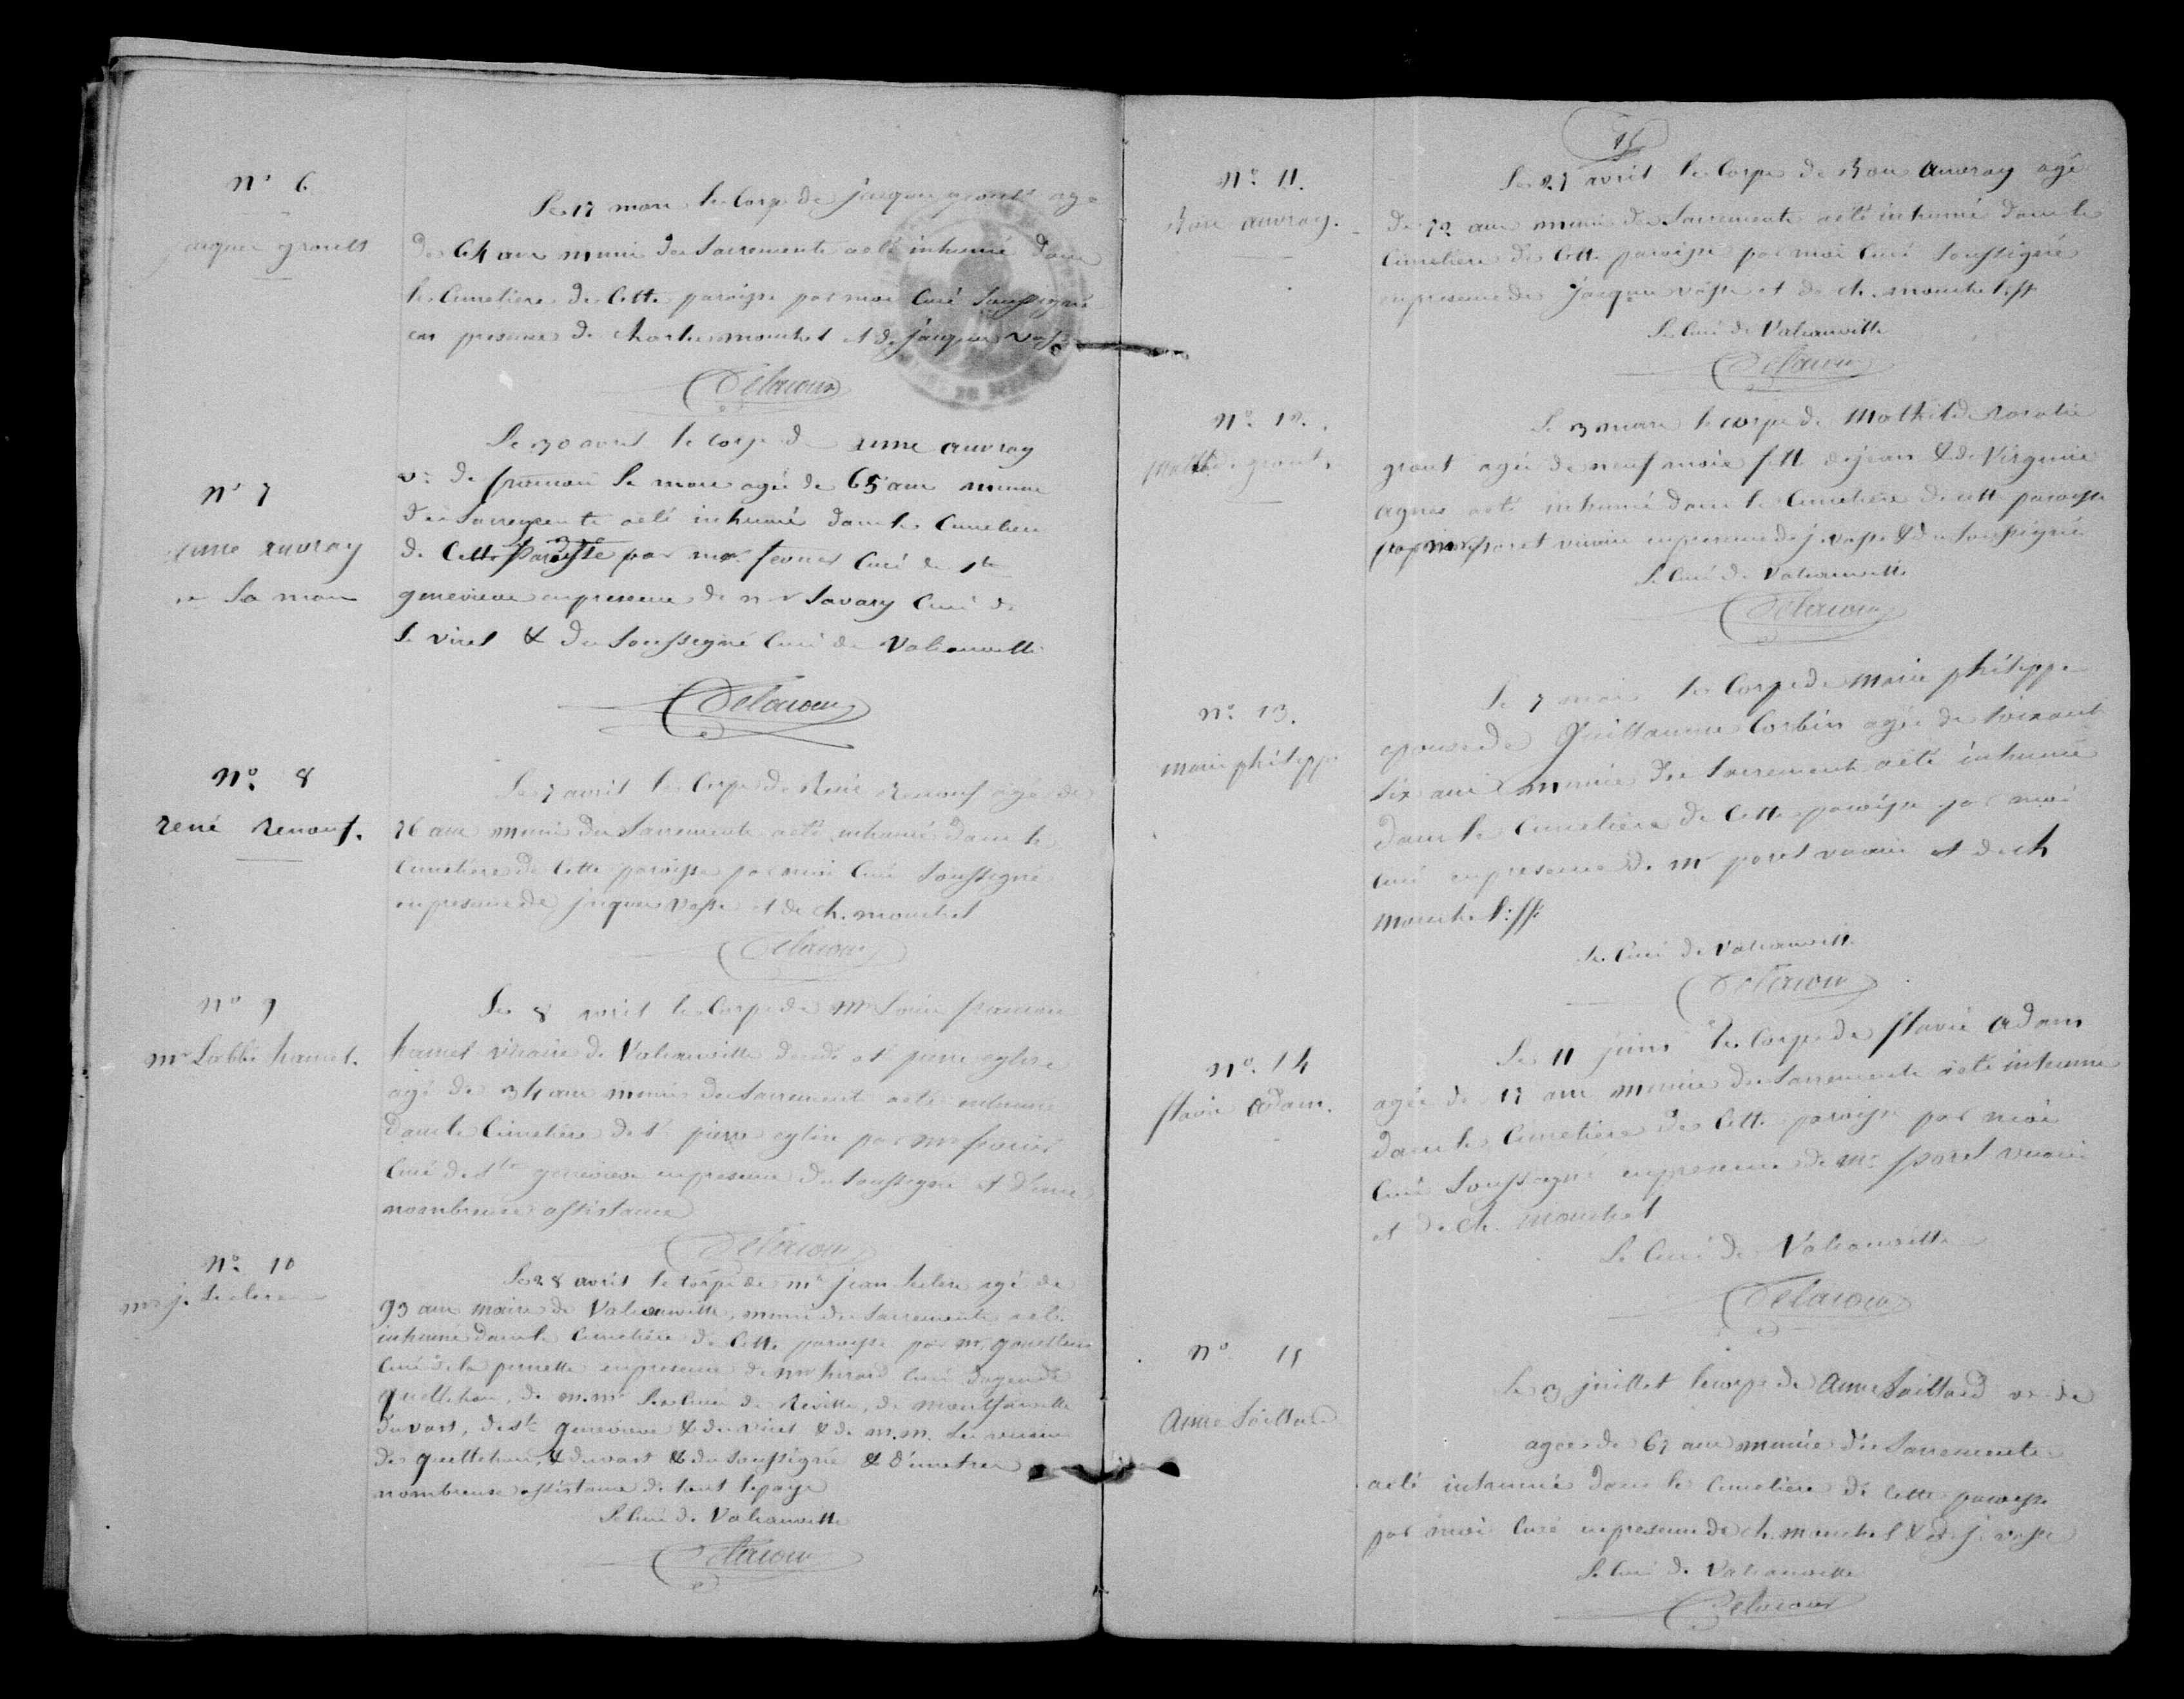 n° 6
jacques groult
Le 17 mars le corps de jacques groult agé
de 64 ans muni des Sacrements a eté inhumé dans
le Cimetière de Cette paroisse par moi Curé Soussigné
en presence de charles mouchel et de jacques vasse
Delacour
n° 7
anne auvray
ve La mare
Le 30 avril le corps de anne auvray
ve de françois la mare agée de 65 ans munie
des Sacrements a eté inhumé dans le Cimetiere
de Cette Paroisse par mr Curé de Ste
genevieve en presence de mr Savary Curé de
le vicel & du Soussigné Curé de Valcanville
Delacour
n° 8
René Renouf.
Le 7 avril le Corps de René Renouf agé de
76 ans muni des Sacrements a eté inhumé dans le
Cimetière de Cette paroisse par moi Curé Soussigné
en presence de jacques vasse et de ch. mouchel
Delacour
n° 9
mr Labbé hamel.
Le 8 avril le Corps de Mr Louis françois
hamel vicaire de Valcanville decedé a St pierre eglise
agé de 34 ans muni des Sacrements a eté inhumé
dans le Cimetière de St pierre eglise par mr
Curé de Ste genevieve en presence du Soussigné et d'une
nombreuse assistance
Delacour
n° 10
mr j. Leclerc
Le 28 avril le corps de mr jean Leclerc agé de
93 ans maire de Valcanville, muni des Sacrements a eté
inhumé dans le Cimetière de Cette paroisse par mr
Curé de la pernelle en presence de mr Curé doyen de
quettehou, de m.mrs les Curés de Reville, de montfarville
du vast, de Ste genevieve & du vicel & de m.m. les vicaires
de quettehou, & du vast & du Soussigné & d'une tres
nombreuse assistance de tout le pays
Le Curé de Valcanville
Delacour
15
n° 11.
Bon auvray.
Le 27 avril le Corps de Bon auvray agé
de 72 ans muni des Sacrements a eté inhumé dans le
Cimetière de Cette paroisse par moi Curé Soussigné
en presence de jacques vasse et de ch. mouchel
Le Curé de Valcanville
Delacour
n° 12.
Mathilde groult.
Le 3 mars le corps de Mathilde Rosalie
groult agée de neuf mois fille de jean & de Virginie
agnes a eté inhumé dans le Cimetière de cette paroisse
par mr poret vicaire en presence de j. vasse & du Soussigné
Le Curé de Valcanville
Delacour
n° 13.
marie philippe
Le 7 mai le Corps de marie philippe
epouse de Guillaume Corbin agée de Soixante
Six ans munie des Sacrements a eté inhumé
dans le Cimetière de Cette paroisse par moi
Curé en presence de mr poret vicaire et de ch
mouchel
Le Curé de Valcanville
Delacour
n° 14
flavie adam.
Le 11 juin le Corps de flavie adam
agée de 17 ans munie des Sacrements a eté inhumé
dans le Cimetière de Cette paroisse par moi
Curé Soussigné en presence de mr poret vicaire
et de ch. mouchel
Le Curé de Valcanville
Delacour
n° 15
Anne Saillard
Le 3 juillet le corps de Anne Saillard ve de
agée de 67 ans munie des Sacrements
a eté inhumé dans le Cimetière de Cette paroisse
par moi Curé en presence de ch. mouchel & de j. vasse
Le Curé de Valcanville
Delacour